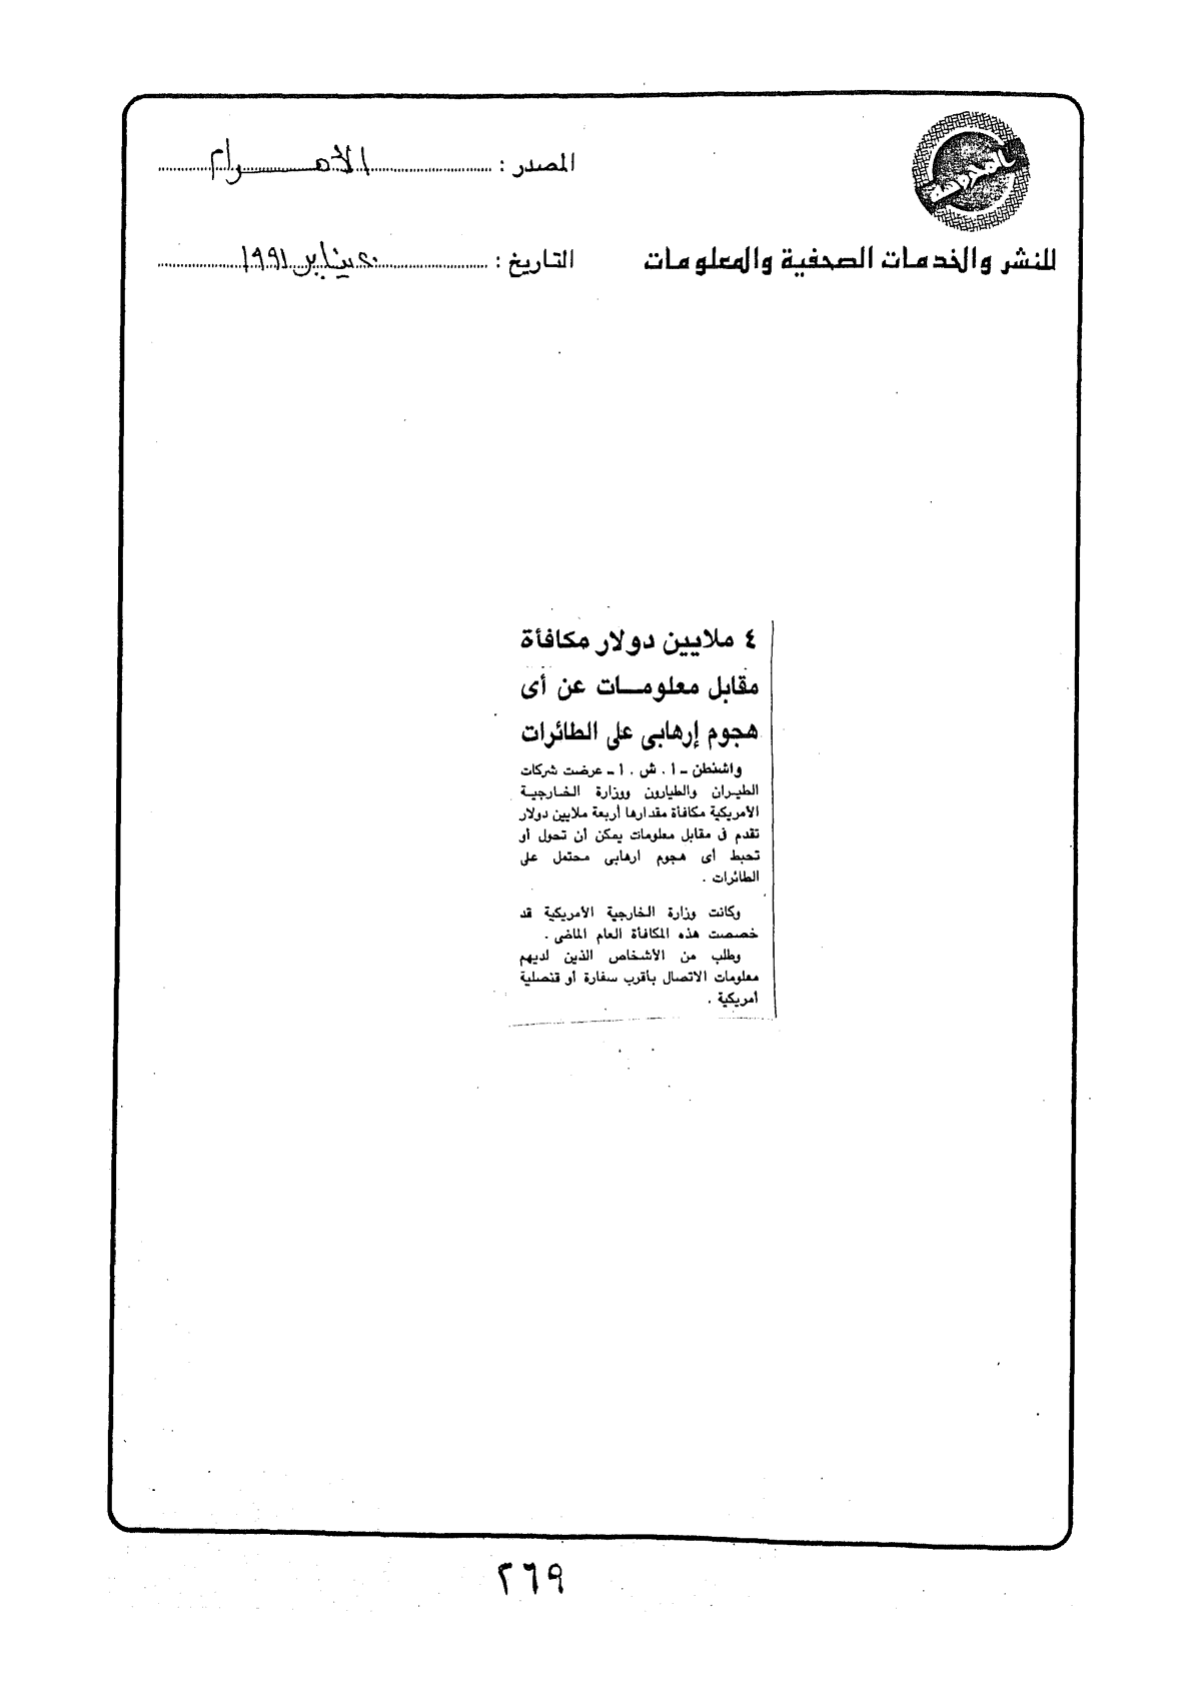 المصدر : الأهرام
للنشر والخدمات الصحفية والمعلومات
التاريخ : ٢٠ يناير ١٩٩١
٤ ملايين دولار مكافأة
مقابل معلومـــات عن أى
هجوم إرهابى على الطائرات
واشنطن ـ أ . ش . أ ـ عرضت شركات
الطيران والطيارون ووزارة الخارجية
الأمريكية مكافأة مقدارها أربعة ملايين دولار
تقدم فى مقابل معلومات يمكن أن تحول أو
تحبط أى هجوم ارهابى محتمل على
الطائرات .
وكانت وزارة الخارجية الأمريكية قد
خصصت هذه المكافأة العام الماضى .
وطلب من الأشخاص الذين لديهم
معلومات الاتصال بأقرب سفارة أو قنصلية
أمريكية .
٢٦٩